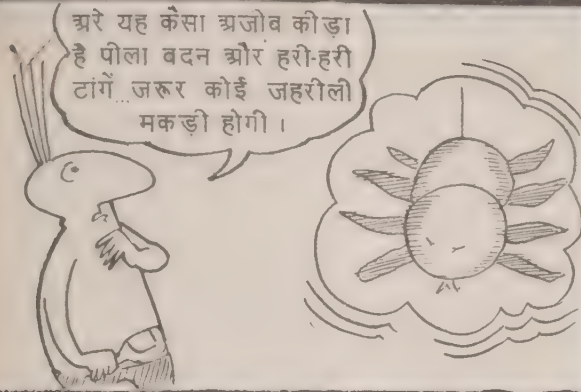 अरे यह कैसा अजोब कीड़ा
है पीला बदन और हरी-हरी
टांगें...जरूर कोई जहरीली
मकड़ी होगी ।